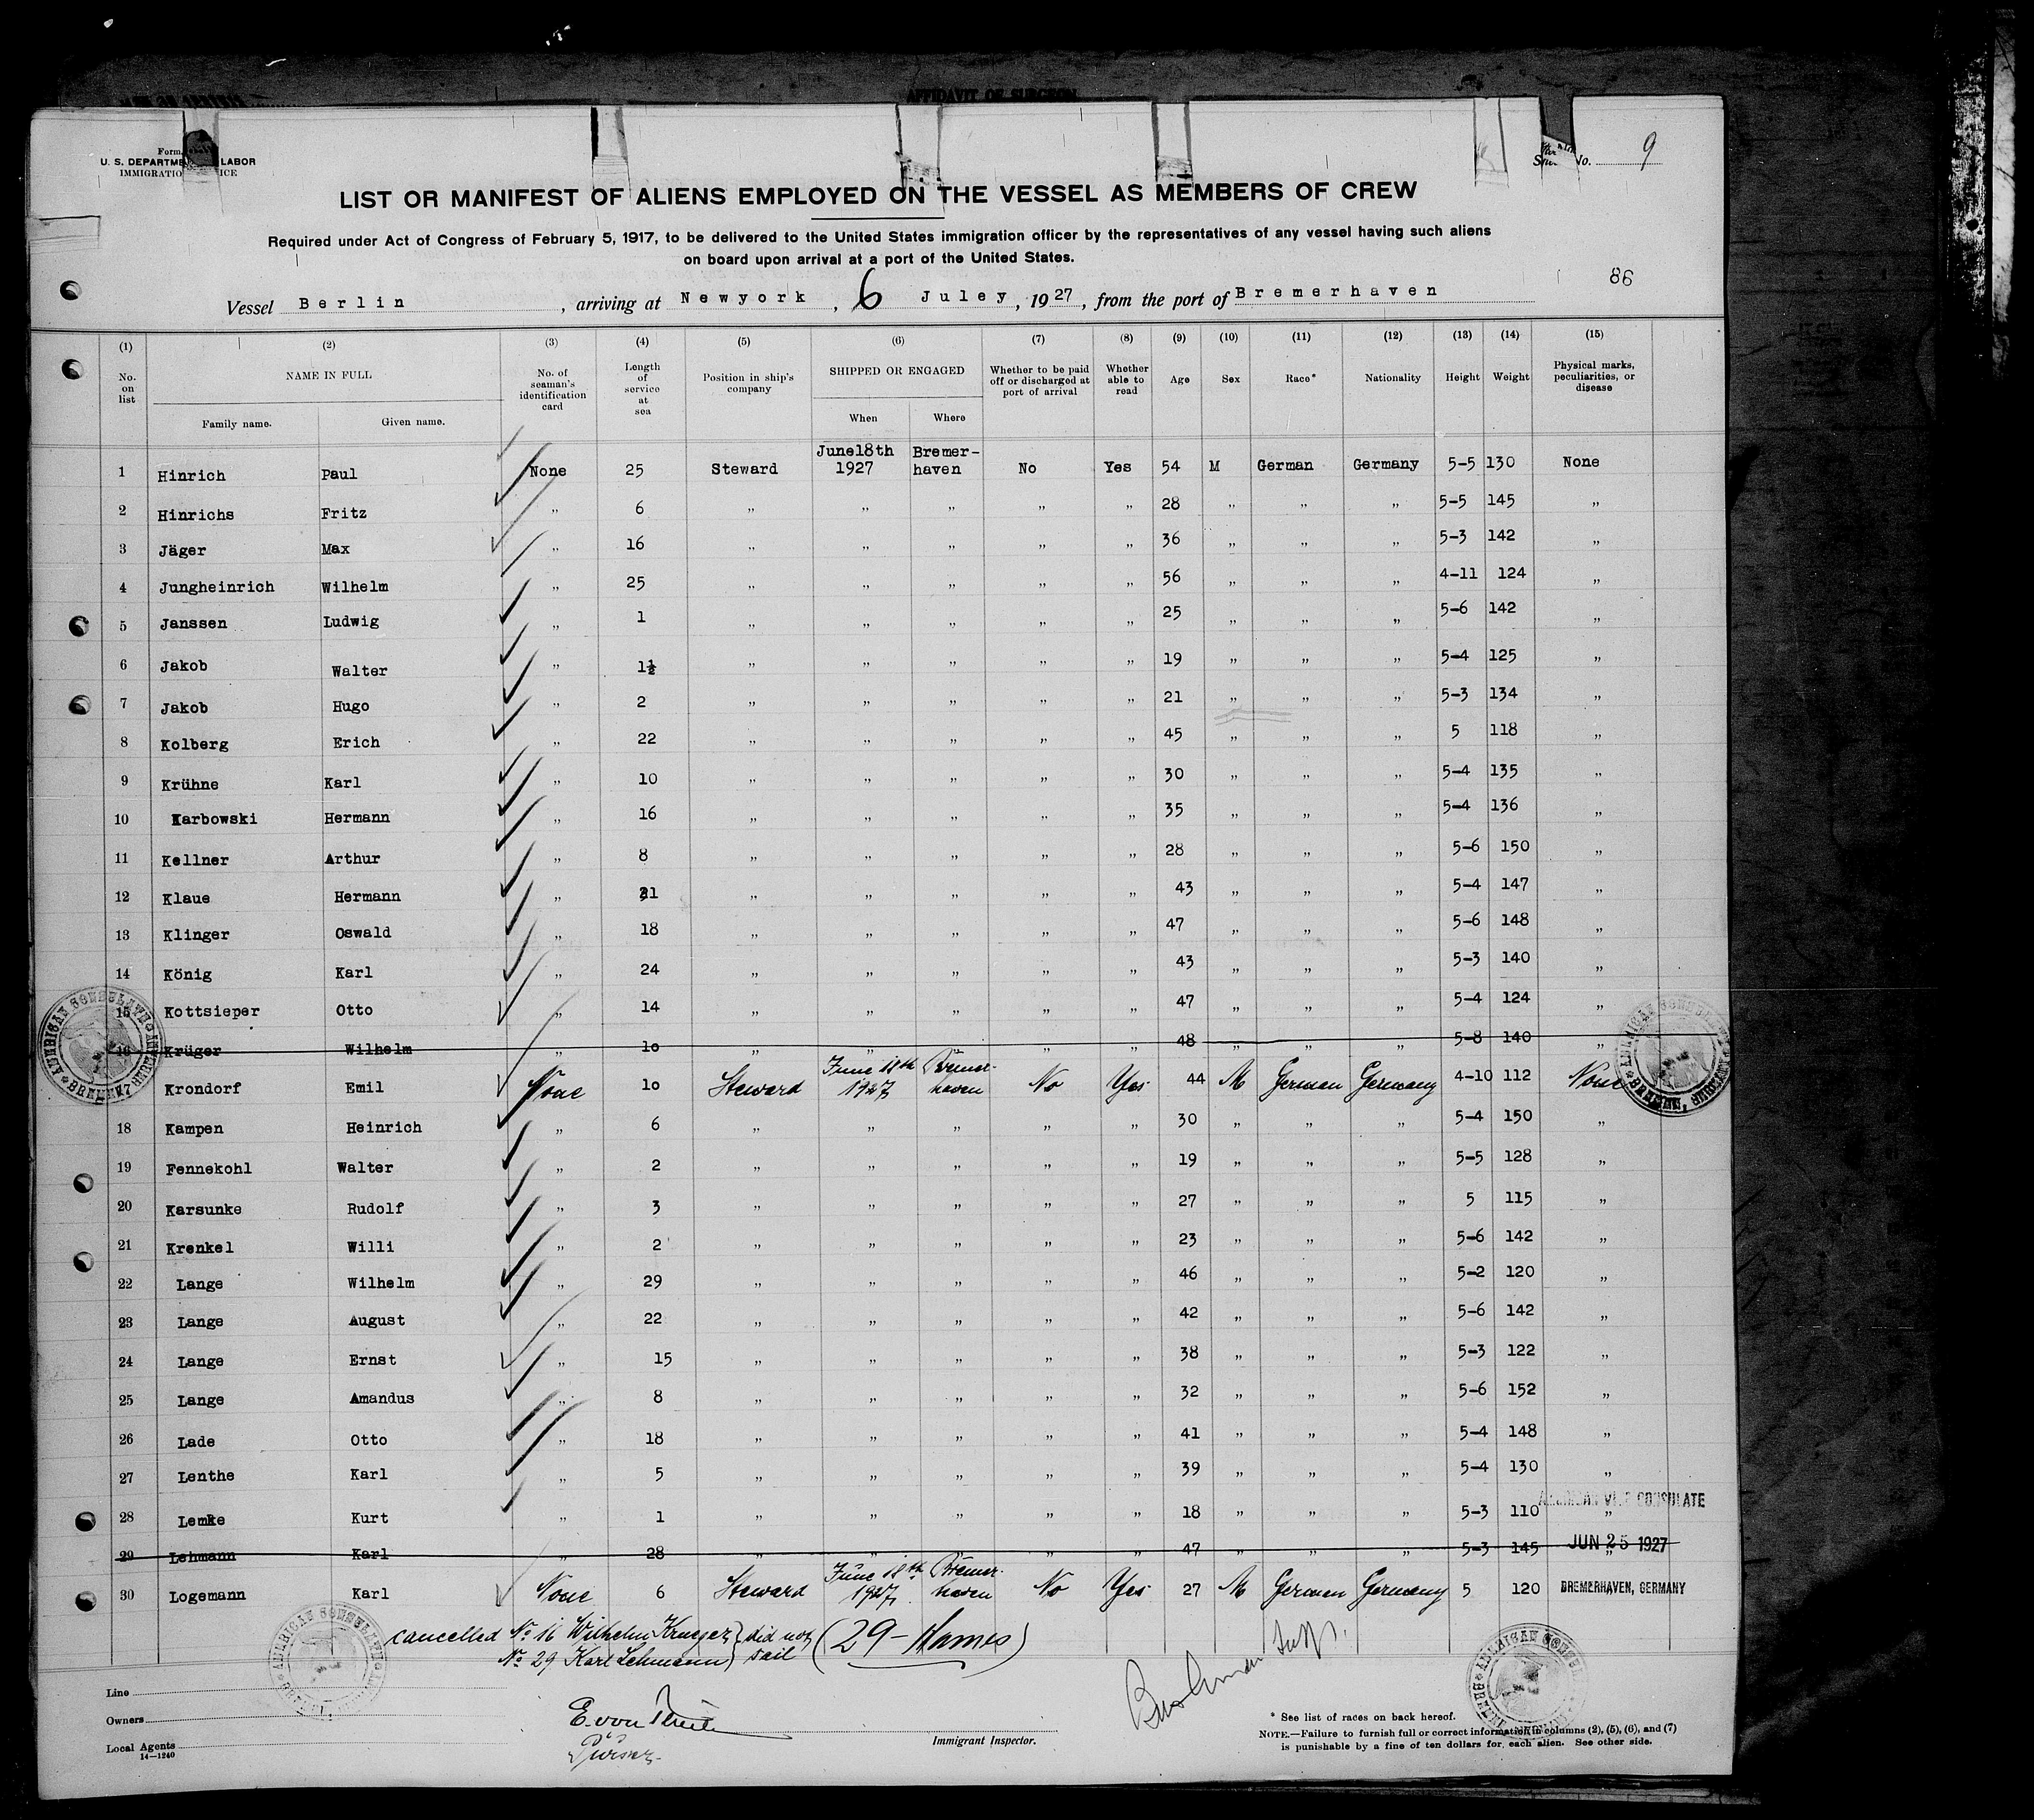 AFFIDAVIT OF SURGEON
Form
U. S. DEPARTME LABOR
IMMIGRATIO ICE
No. 9
LIST OR MANIFEST OF ALIENS EMPLOYED ON THE VESSEL AS MEMBERS OF CREW
Required under Act of Congress of February 5, 1917, to be delivered to the United States immigration officer by the representatives of any vessel having such aliens
on board upon arrival at a port of the United States.
86
Vessel Berlin, arriving at Newyork, 6 Juley, 1927, from the port of Bremerhaven
(1) (2) (3) (4) (5) (6) (7) (8) (9) (10) (11) (12) (13) (14) (15)
No. on list NAME IN FULL Family name. Given name. No. of seaman's identification card Length of service at sea Position in ship's company SHIPPED OR ENGAGED When Where Whether to be paid off or discharged at port of arrival Whether able to read Age Sex Race* Nationality Height Weight Physical marks, peculiarities, or disease
1 Hinrich Paul None 25 Steward June18th 1927 Bremer-haven No Yes 54 M German Germany 5-5 130 None
2 Hinrichs Fritz " 6 " " " " " 28 " " " 5-5 145 "
3 Jäger Max " 16 " " " " " 36 " " " 5-3 142 "
4 Jungheinrich Wilhelm " 25 " " " " " 56 " " " 4-11 124 "
5 Janssen Ludwig " 1 " " " " " 25 " " " 5-6 142 "
6 Jakob Walter " 1½ " " " " " 19 " " " 5-4 125 "
7 Jakob Hugo " 2 " " " " " 21 " " " 5-3 134 "
8 Kolberg Erich " 22 " " " " " 45 " " " 5 118 "
9 Krühne Karl " 10 " " " " " 30 " " " 5-4 135 "
10 Karbowski Hermann " 16 " " " " " 35 " " " 5-4 136 "
11 Kellner Arthur " 8 " " " " " 28 " " " 5-6 150 "
12 Klaue Hermann " 21 " " " " " 43 " " " 5-4 147 "
13 Klinger Oswald " 18 " " " " " 47 " " " 5-6 148 "
14 König Karl " 24 " " " " " 43 " " " 5-3 140 "
15 Kottsieper Otto " 14 " " " " " 47 " " " 5-4 124 "
16 Krüger Wilhelm " 10 " " " " " 48 " " " 5-8 140 "
17 Krondorf Emil None 10 Steward June 18th 1927 Bremer-haven No Yes 44 M German Germany 4-10 112 None
18 Kampen Heinrich " 6 " " " " " 30 " " " 5-4 150 "
19 Fennekohl Walter " 2 " " " " " 19 " " " 5-5 128 "
20 Karsunke Rudolf " 3 " " " " " 27 " " " 5 115 "
21 Krenkel Willi " 2 " " " " " 23 " " " 5-6 142 "
22 Lange Wilhelm " 29 " " " " " 46 " " " 5-2 120 "
23 Lange August " 22 " " " " " 42 " " " 5-6 142 "
24 Lange Ernst " 15 " " " " " 38 " " " 5-3 122 "
25 Lange Amandus " 8 " " " " " 32 " " " 5-6 152 "
26 Lade Otto " 18 " " " " " 41 " " " 5-4 148 "
27 Lenthe Karl " 5 " " " " " 39 " " " 5-4 130 "
AMERICAN VICE CONSULATE
28 Lemke Kurt " 1 " " " " " 18 " " " 5-3 110 "
29 Lehmann Karl " 28 " " " " " 47 " " " 5-3 145 " JUN 25 1927
30 Logemann Karl None 6 Steward June 18th 1927 Bremer-haven No Yes 27 M German Germany 5 120 BREMERHAVEN, GERMANY
cancelled No 16 Wilhelm Krueger } did not (29 - Names)
No 29 Karl Lehmann } sail
Line
Owners
Local Agents
14—1240
E. von
Purser
Immigrant Inspector.
* See list of races on back hereof.
NOTE.—Failure to furnish full or correct information in columns (2), (5), (6), and (7)
is punishable by a fine of ten dollars for each alien. See other side.